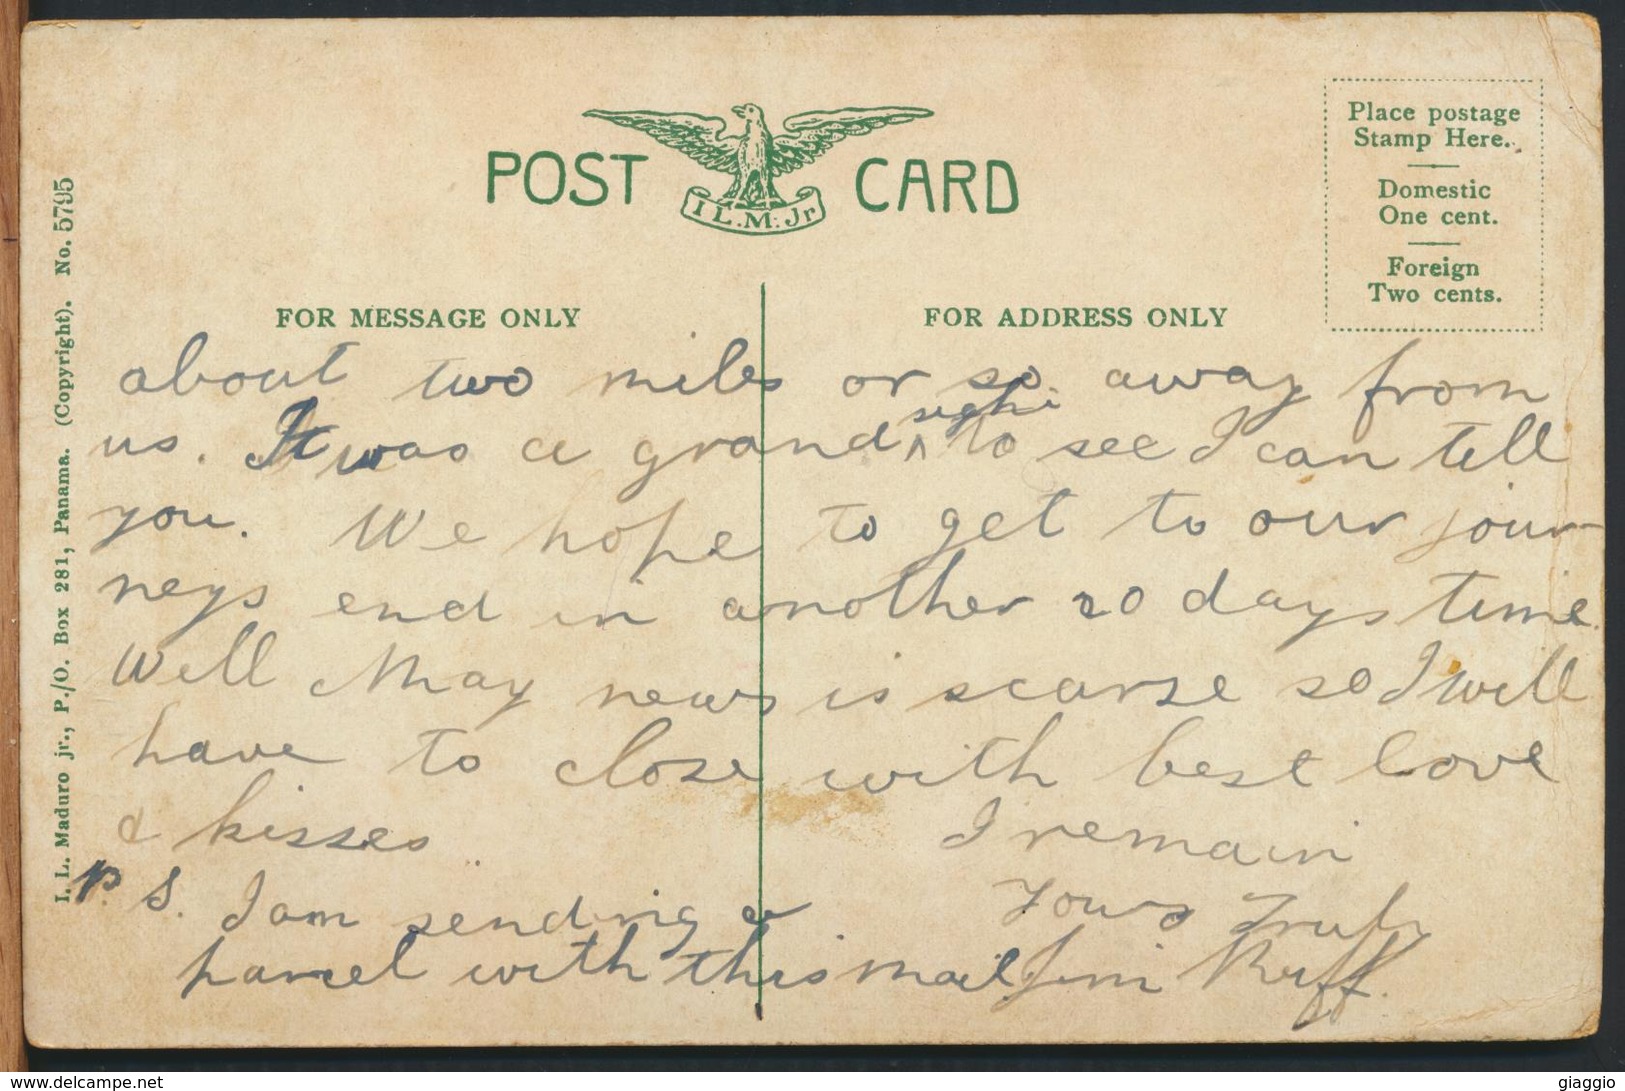 POST CARD
I.L.M. Jr
Place postage
Stamp Here.
Domestic
One cent.
Foreign
Two cents.
FOR MESSAGE ONLY
FOR ADDRESS ONLY
I. L. Maduro jr., P./O. Box 281, Panama. (Copyright). No. 5795
about two miles or so. away from
us. It was a grand ^ sight to see I can tell
you. We hope to get to our jour-
neys end in another 20 days time.
Well May news is scarse so I will
have to close with best love
& kisses. I remain
P. S. I am sending a Yours Truly
parcel with this mail Jim
www.delcampe.net
giaggio